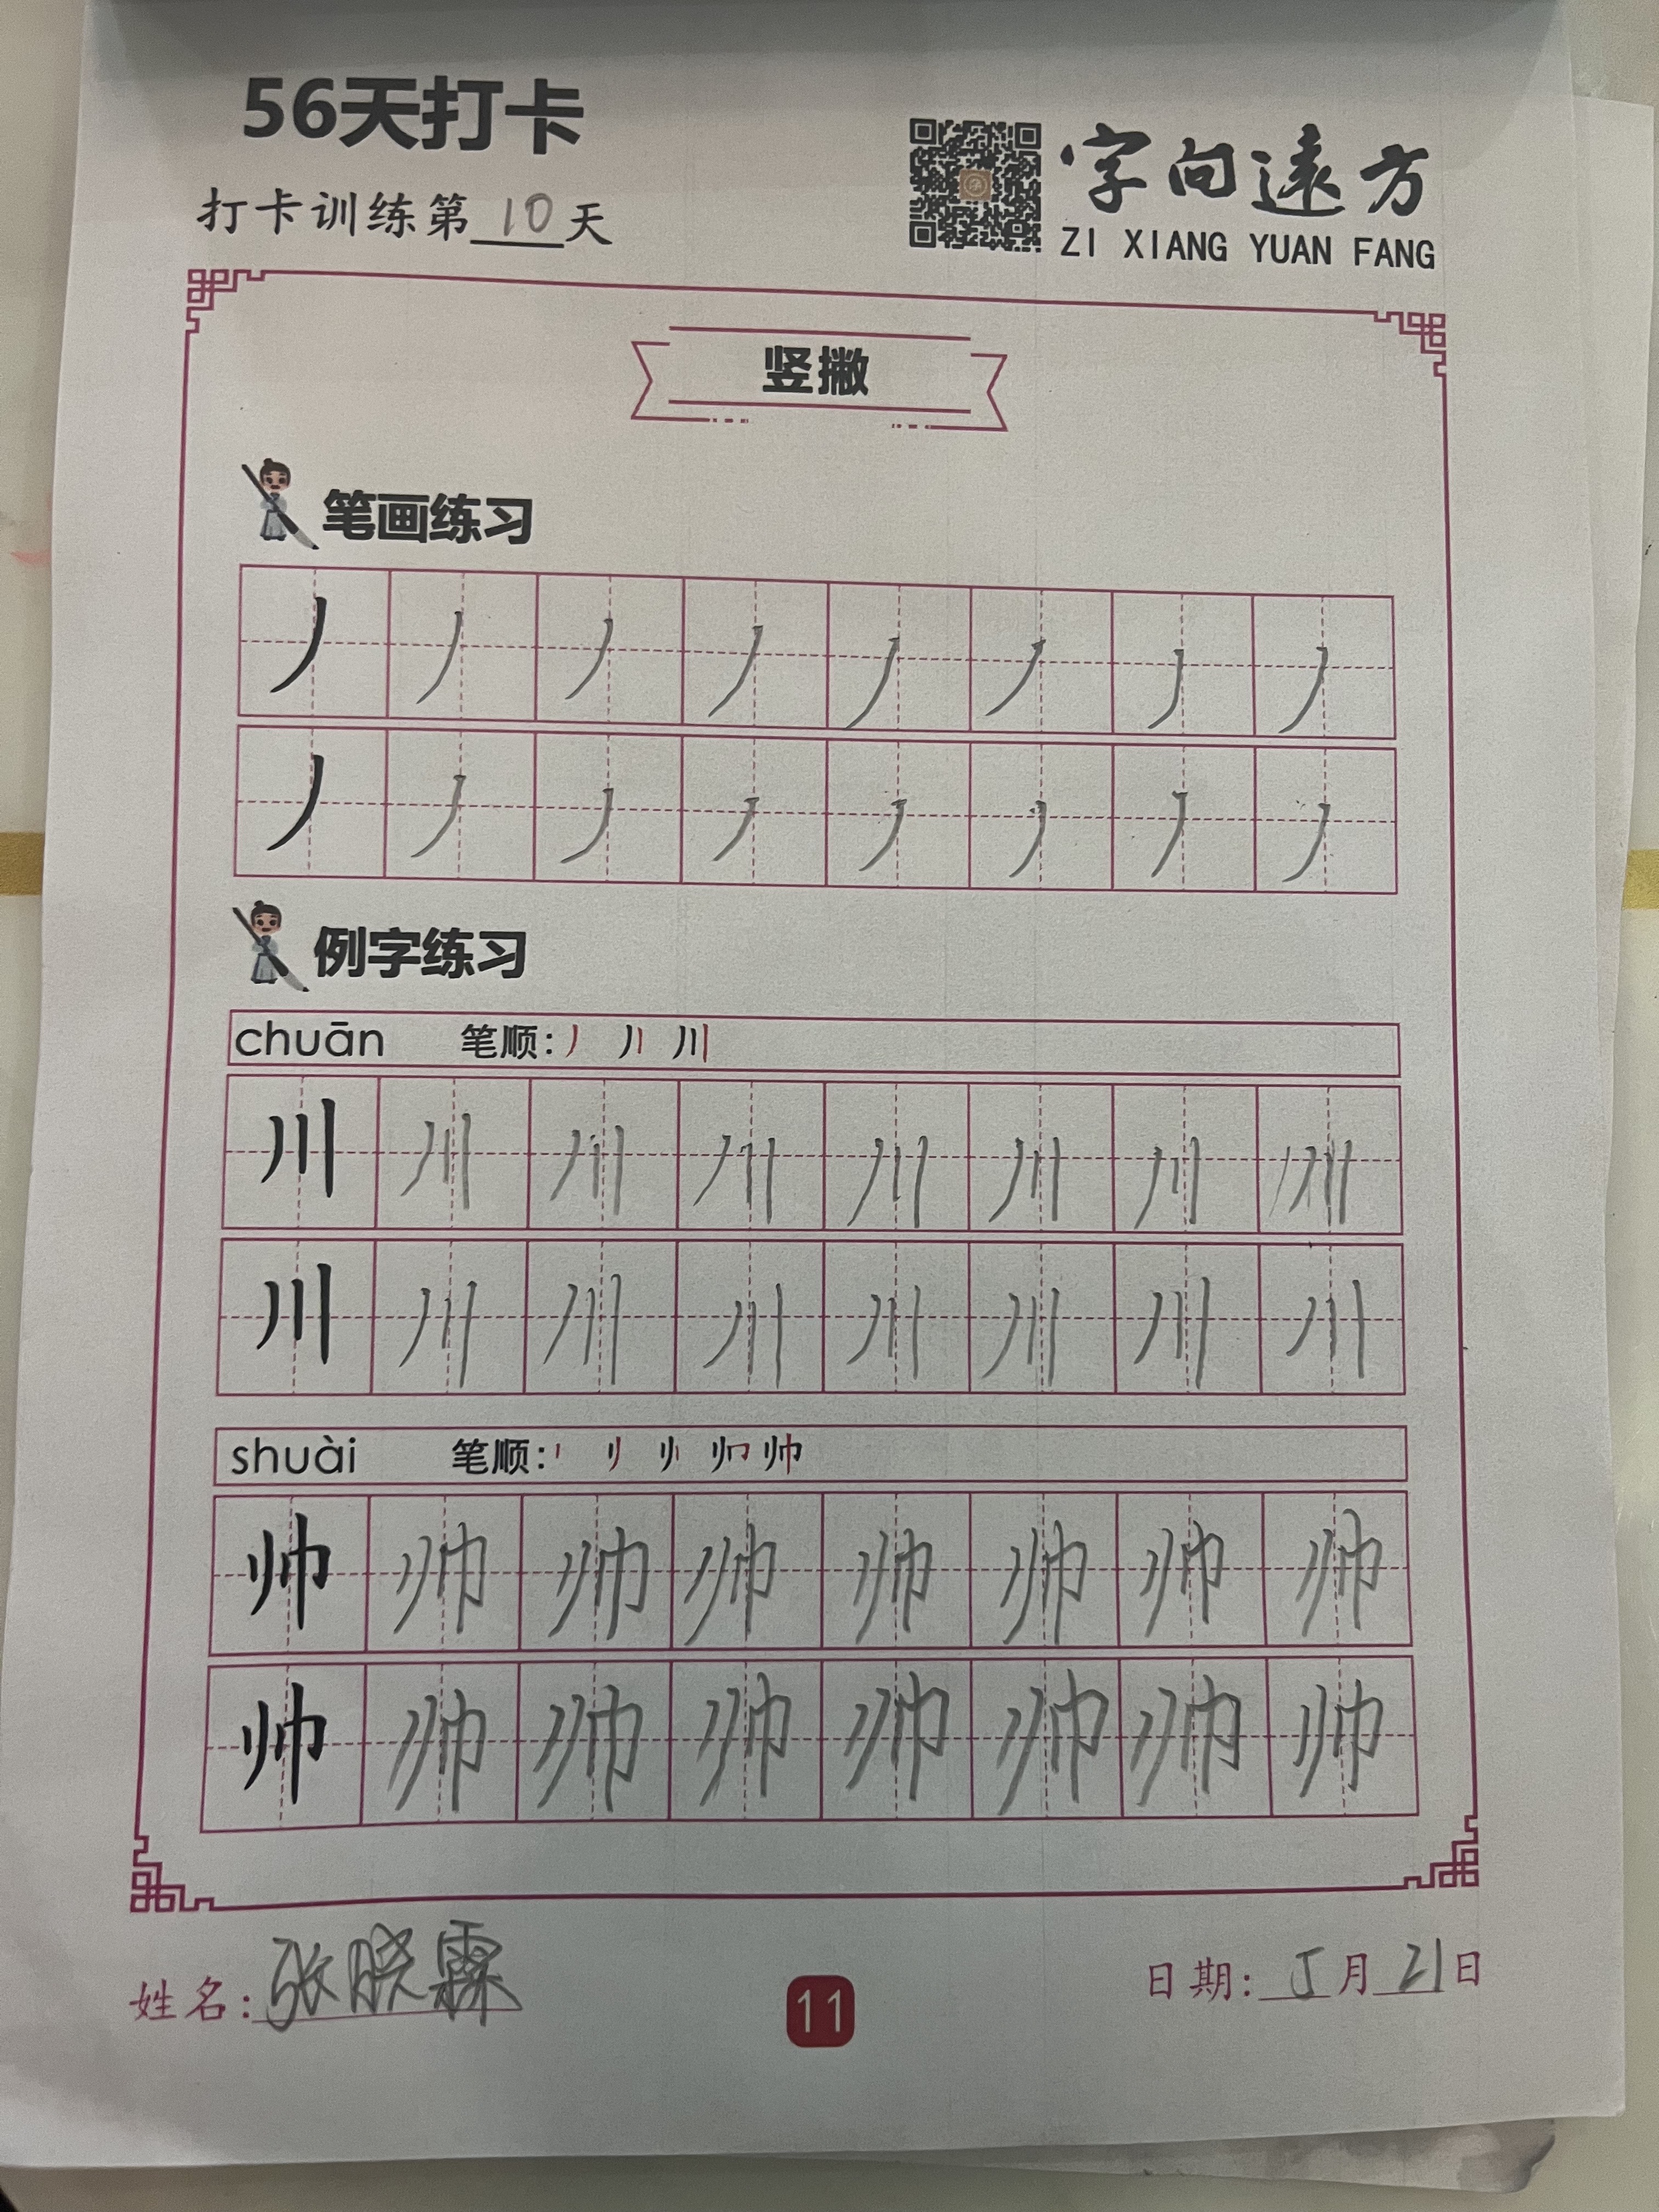 56天打卡
打卡训练第10天
字向远方
ZI XIANG YUAN FANG
竖撇
笔画练习
丿 丿 丿 丿 丿 丿 丿 丿
丿 丿 丿 丿 丿 丿 丿 丿
例字练习
chuān 笔顺: 丿 丿丨 川
川 川 川 川 川 川 川 川
川 川 川 川 川 川 川 川
shuài 笔顺: 帅
帅 帅 帅 帅 帅 帅 帅 帅
帅 帅 帅 帅 帅 帅 帅 帅
姓名: 张晓霖
11
日期: 5月21日